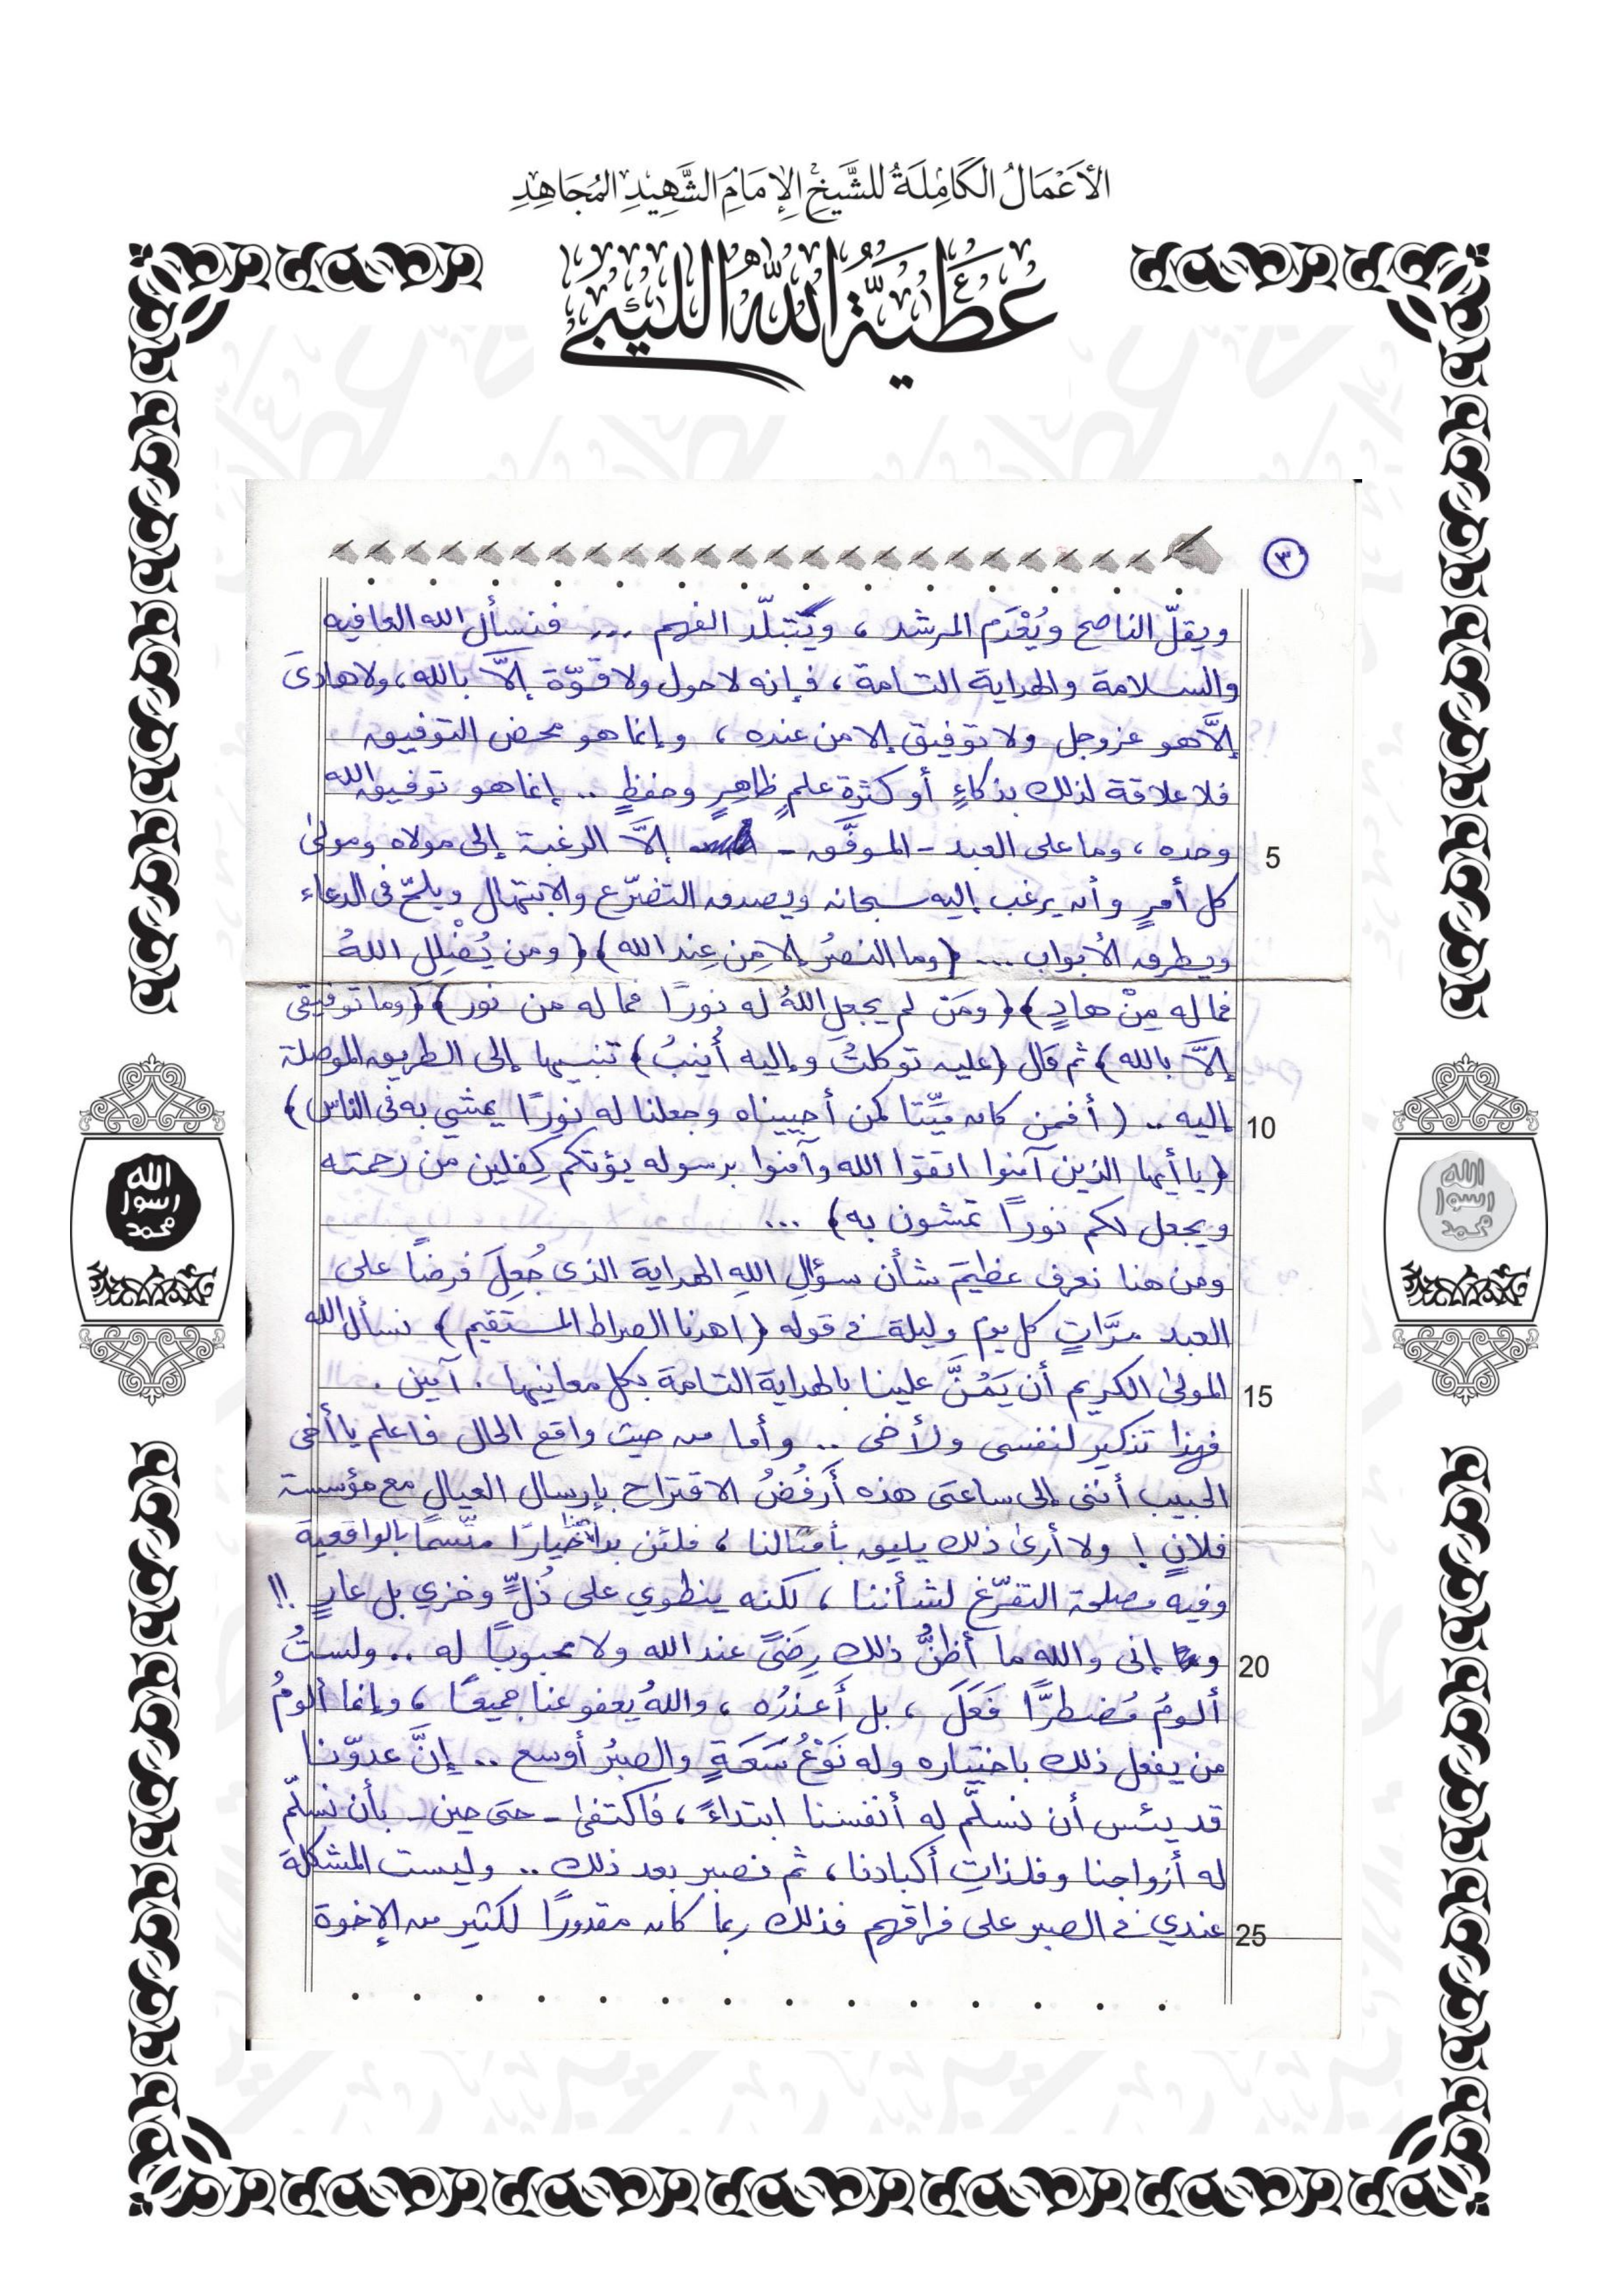 الأَعْمَالُ الكَامِلَةُ للشَّيْخِ الإِمَامِ الشَّهِيدِ المُجَاهِدِ
عَطِيَّةُ اللَّهِ اللِّيبِيّ
٣
ويقلّ الناصح ويُعْدَم المرشد ، ويَتَبلّد الفهم ... فنسأل الله العافيه
والسلامة والهداية التامة ، فإنه لا حول ولا قوّة إلاَّ بالله ، ولا هادىَ
إلاَّ هو عزوجل ولا توفيق إلا من عنده ، وإنما هو محض التوفيق
فلا علاقة لذلك بذكاءٍ أو كثرة علمٍ ظاهِرٍ وحفظٍ .. إنما هو توفيق الله
5 وحده ، وما على العبد - الموفَّق - إلاَّ الرغبة إلى مولاه ومولىٰ
كل أمرٍ وأن يرغب إليه سبحانه ويصدق التضرّع والابتهال ويلحّ فى الدعاء
ويطرق الأبواب ... (وما النصرُ إلا مِن عِند الله) (ومن يُضْلِلِ اللهُ
فما له مِنْ هادٍ) (ومَن لم يجعلِ اللهُ له نورًا فما له من نور) (وما توفيقى
إلاَّ بالله) ثم قال (عليه توكلتُ وإليه أُنيبُ) تنبيها إلى الطريق الموصلة
10 إليه .. (أفمن كان ميِّتا كمن أحييناه وجعلنا له نورًا يمشي به فى الناس)
(يا أيها الذين آمنوا اتقوا الله وآمنوا برسوله يؤتكم كِفلين من رحمته
ويجعل لكم نورًا تمشون به) ...
ومن هنا نعرف عظيمَ شأن سؤالِ اللهِ الهداية الذى جُعِلَ فرضًا على
العبد مرَّاتٍ كل يوم وليلة فى قوله (اهدنا الصراط المستقيم) نسأل الله
15 المولىٰ الكريم أن يَمُنَّ علينا بالهداية التامة بكل معانيها . آمين .
فهذا تذكير لنفسى ولأخى .. وأما من حيث واقع الحال فاعلم يا أخى
الحبيب أننى إلى ساعتى هذه أَرفُضُ الاقتراح بإرسال العيال مع مؤسسة
فلانٍ ! ولا أرىٰ ذلك يليق بأمثالنا ، فلئن بدا خيارًا متّسمًا بالواقعية
وفيه مصلحة التفرّغ لشأننا ، لكنه ينطوي على ذُلٍّ وخزي بل عارٍ !!
20 و إنى والله ما أظنُّ ذلك رِضَىً عند الله ولا محبوبًا له .. ولستُ
ألومُ مُضطرًّا فَعَلَ ، بل أَعذرُه ، واللهُ يعفو عنا جميعًا ، وإنما ألومُ
من يفعل ذلك باختياره وله نَوْعُ سَعَةٍ والصبرُ أوسع .. إنَّ عدوّنا
قد يئس أن نسلّم له أنفسنا ابتداءً ، فاكتفىٰ - حتى حين - بأن نسلّم
له أزواجنا وفلذاتِ أكبادنا ، ثم نصبر بعد ذلك .. وليست المشكلة
25 عندي فى الصبر على فراقهم فذلك ربما كان مقدورًا لكثير من الإخوة
الله
رسول
محمد
الله
رسول
محمد